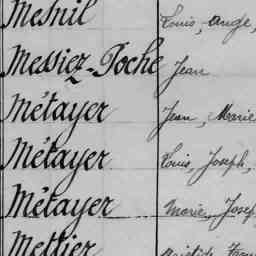 Mesnil Louis, Ange,
Messiez-Poche Jean
Métayer Jean, Marie
Métayer Louis, Joseph,
Métayer Marie, Josep
Mettier Aristide, Fran